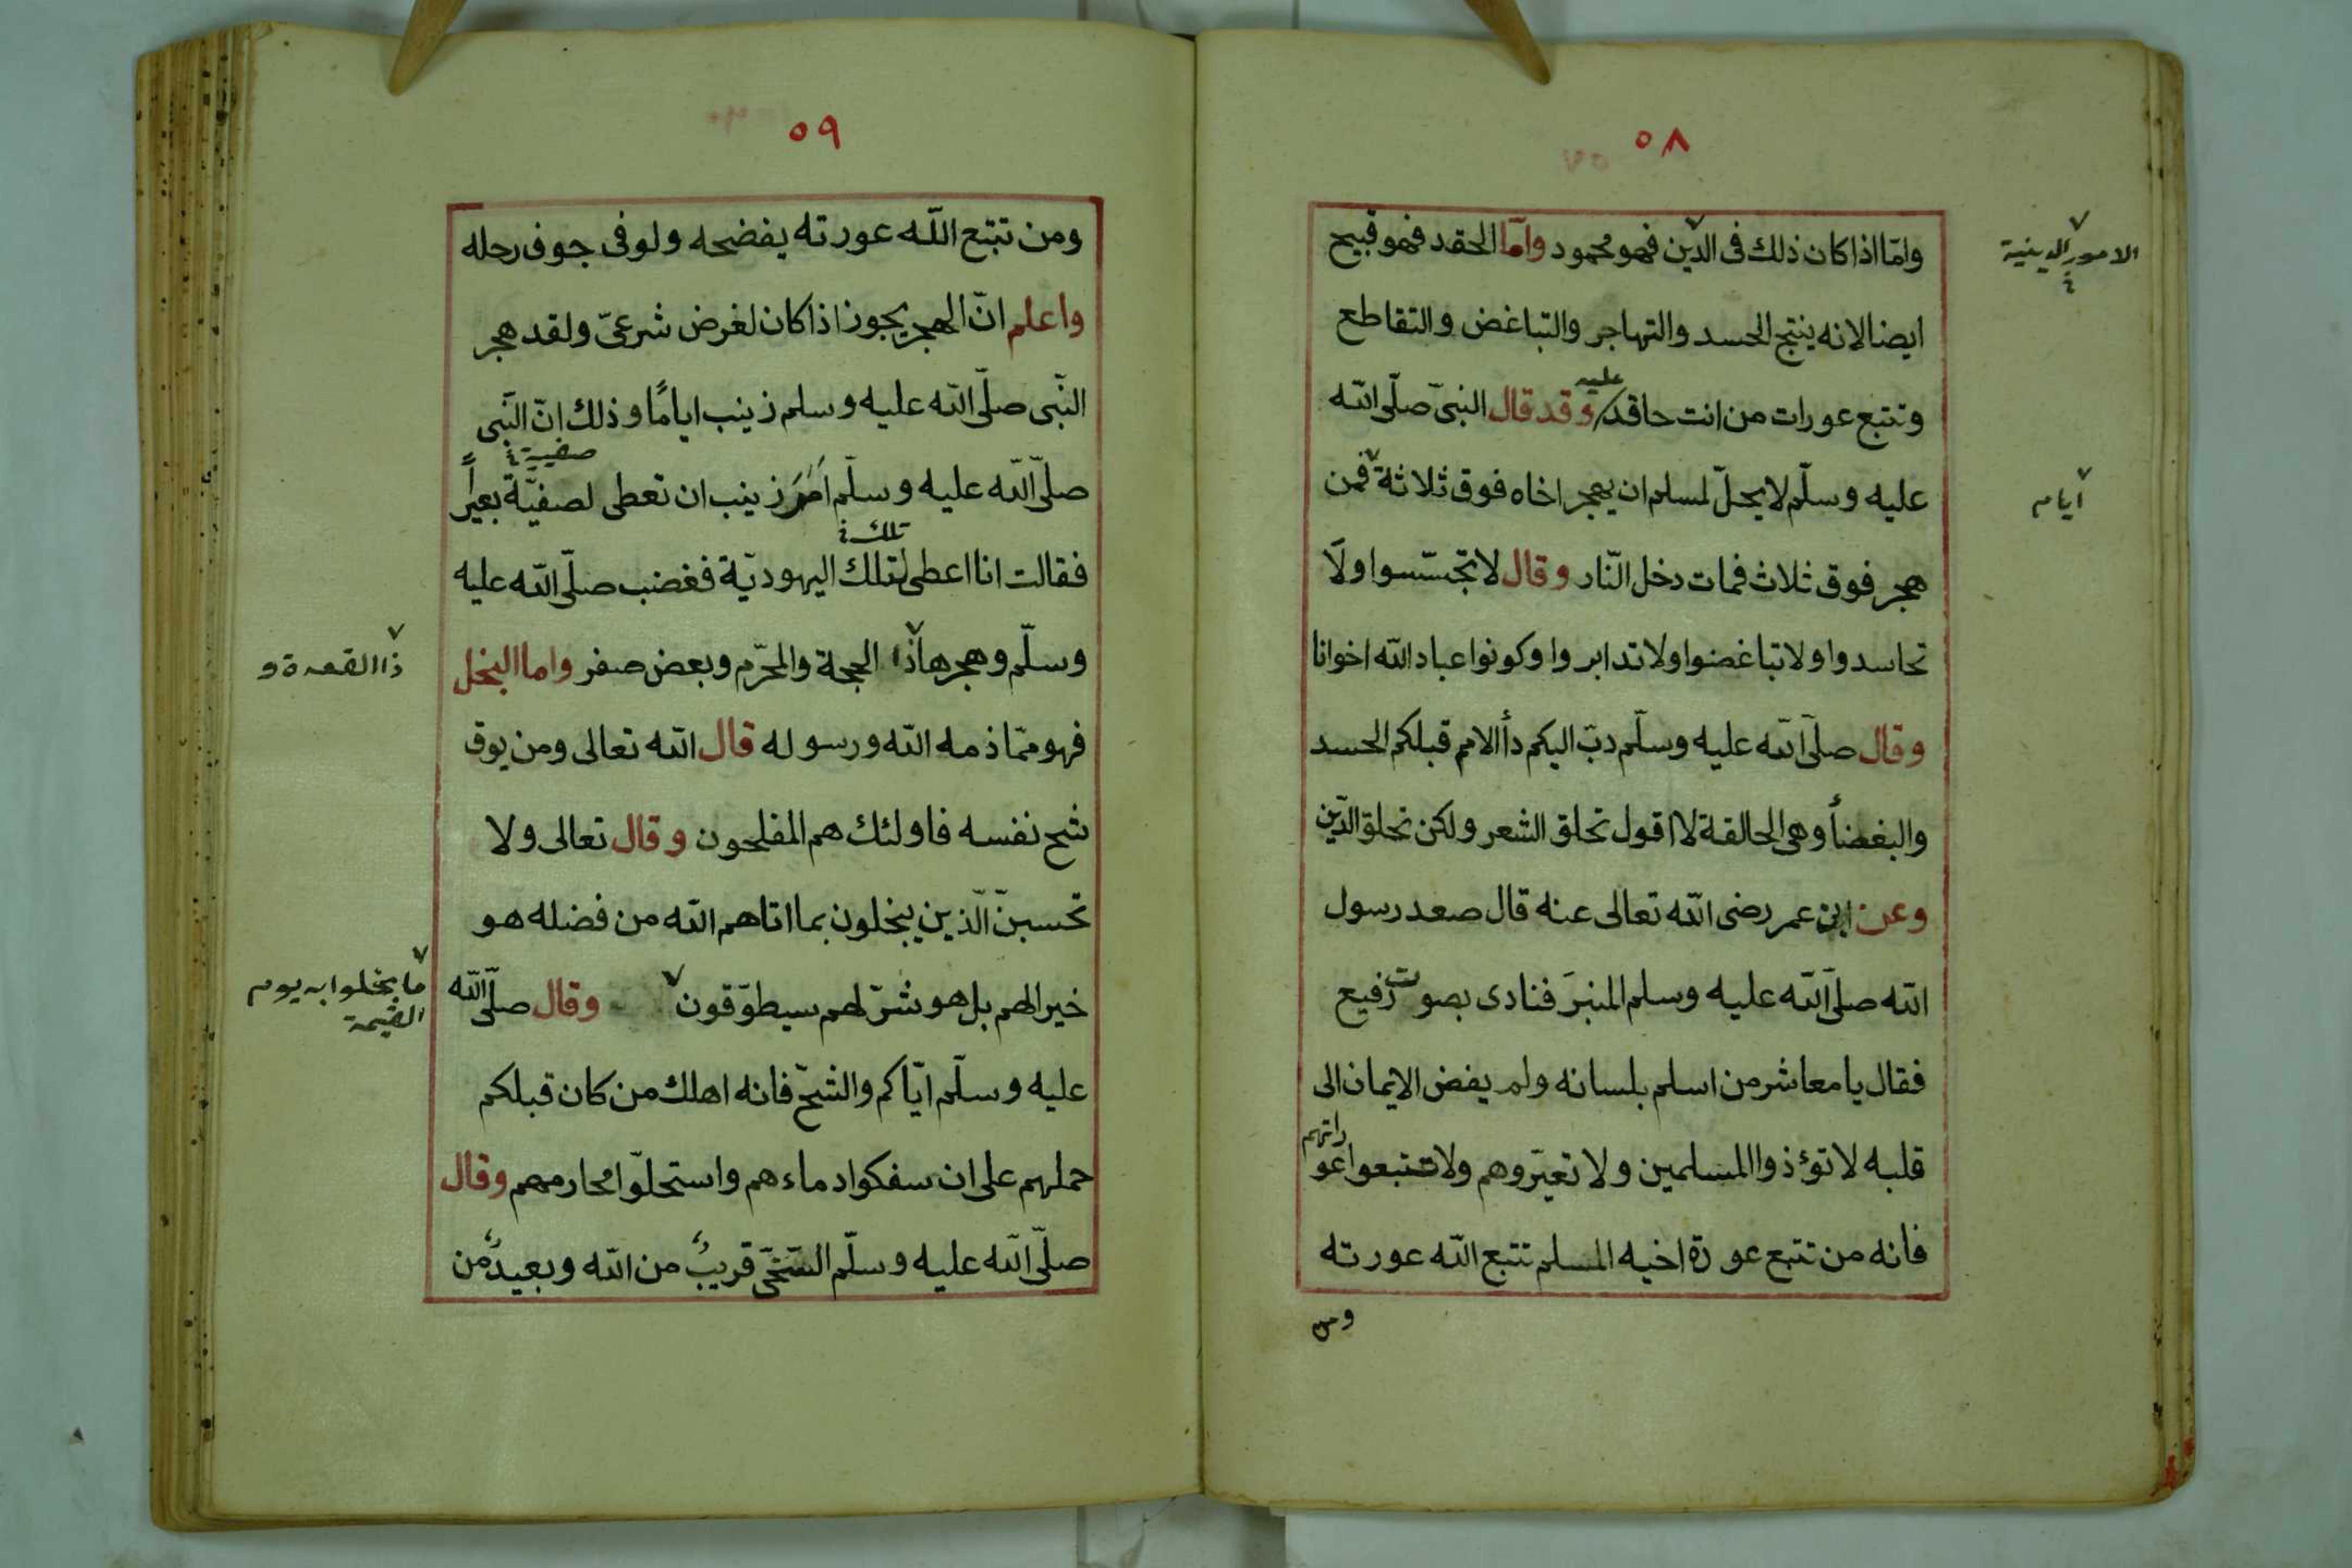 ٥٨
وامّا اذا كان ذلك فى الدّين فهو محمود وامّا الحقد فهو قبيح
الامور الدينية
ايضا لانه ينتج الحسد والتهاجر والتباغض والتقاطع
وتتبع عورات من انت حاقد عليه وقد قال النبىّ صلّى الله
عليه وسلّم لا يحلّ لمسلم ان يهجر اخاه فوق ثلاثة فمن
ايام
هجر فوق ثلاث فمات دخل النّار وقال لا تجسّسوا ولا
تحاسدوا ولا تباغضوا ولا تدابروا وكونوا عباد الله اخوانا
وقال صلّى الله عليه وسلّم دبّ اليكم دأ الامم قبلكم الحسد
والبغضأ وهى الحالقة لا اقول تحلق الشعر ولكن تحلق الدّين
وعن ابن عمر رضى الله تعالى عنه قال صعد رسول
الله صلّى الله عليه وسلم المنبرَ فنادى بصوت رفيع
فقال يا معاشر من اسلم بلسانه ولم يفض الايمان الى
قلبه لا تؤذوا المسلمين ولا تعيّروهم ولا تتبعوا عوراتهم
فانه من تتبع عورة اخيه المسلم تتبع الله عورته
ومن
٥٩
ومن تتبع اللّه عورته يفضحه ولو فى جوف رحله
واعلم انّ الهجر يجوز اذا كان لغرض شرعىّ ولقد هجر
النّبى صلّى الله عليه وسلم زينب ايامًا وذلك انّ النّبى
صفية
صلّى الله عليه وسلّم اَمَرَ زينب ان تعطى لصفيّة بعيراً
تلك
فقالت انا اعطى لتلك اليهوديّة فغضب صلّى الله عليه
وسلّم وهجرها ذا الحجة والمحرّم وبعض صفر واما البخل
ذا القعدة و
فهو ممّا ذمه الله ورسوله قال الله تعالى ومن يوق
شح نفسه فاولئك هم المفلحون وقال تعالى ولا
تحسبنّ الّذين يبخلون بما اتاهم الله من فضله هو
خيرا لهم بل هو شرّ لهم سيطوّقون وقال صلّى الله
ما بخلوا به يوم
القيمة
عليه وسلّم ايّاكم والشحّ فانه اهلك من كان قبلكم
حملهم على ان سفكوا دماءهم واستحلّوا محارمهم وقال
صلّى الله عليه وسلّم السّخّى قريبٌ من الله وبعيدٌ من